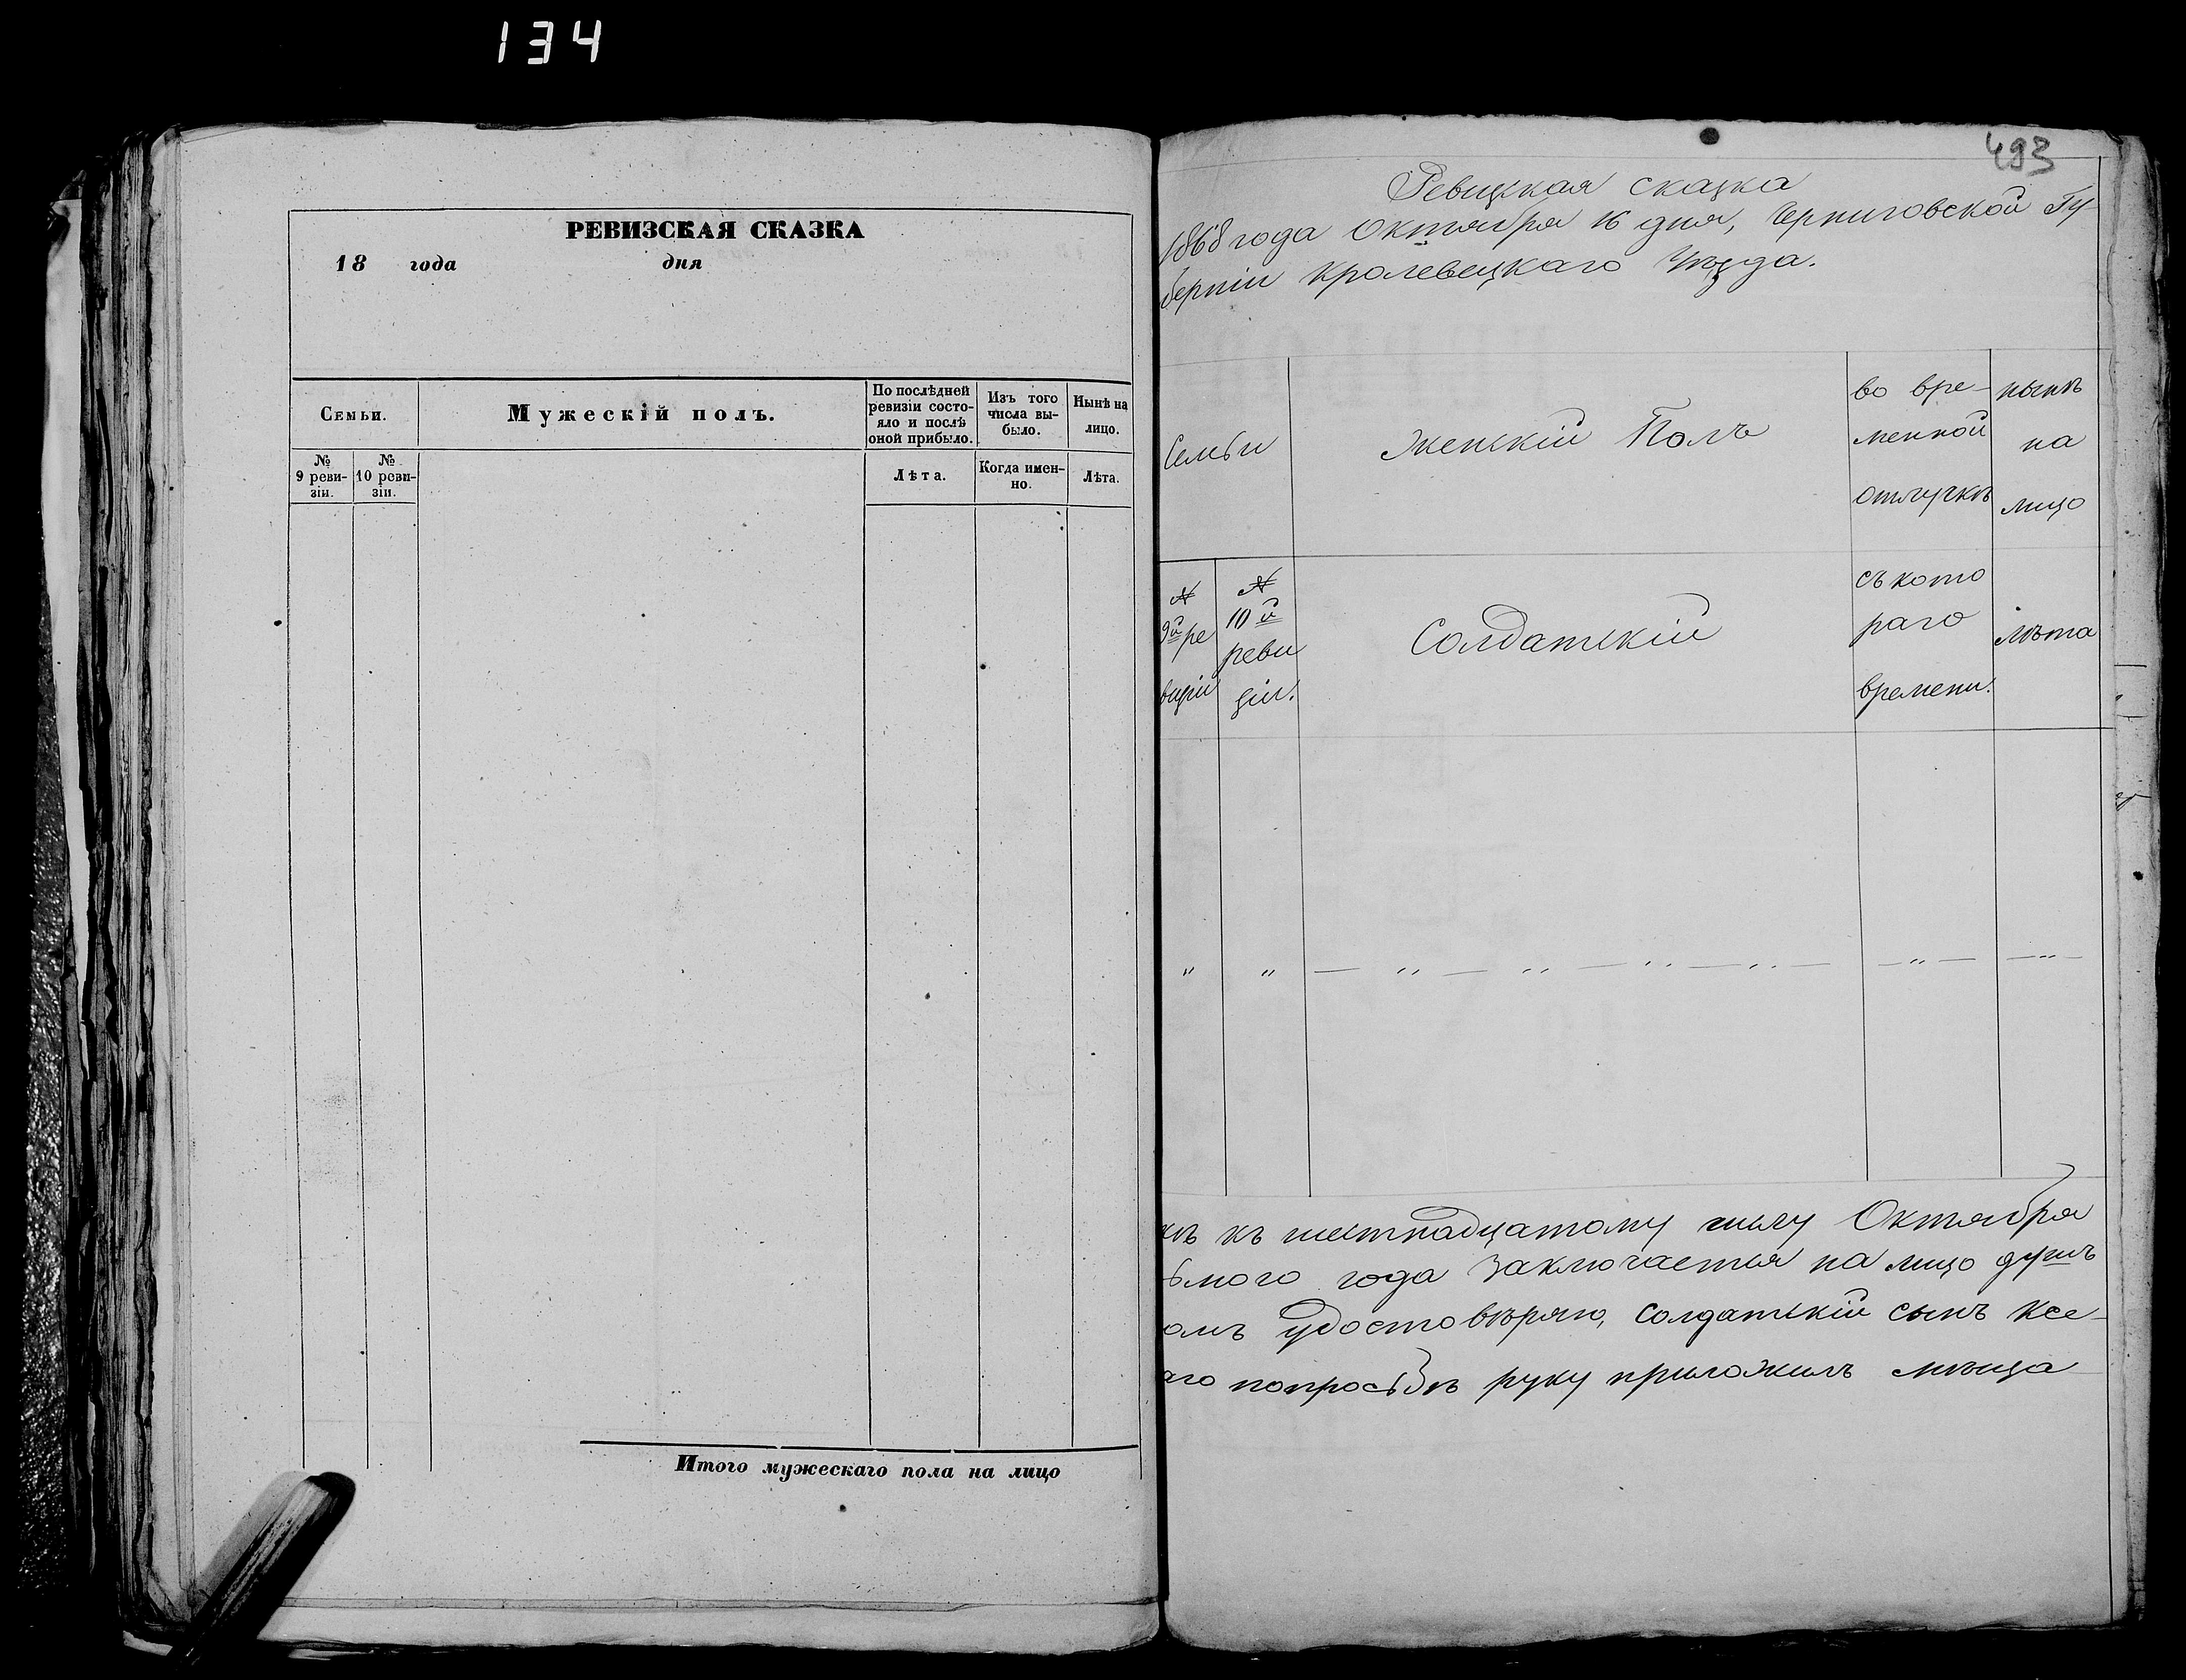 134
РЕВИЗСКАЯ СКАЗКА
18 года дня
Семьи.
Мужескій полъ.
По послѣдней
ревизіи состо-
яло и послѣ
оной прибыло.
Изъ того
числа вы-
было.
Нынѣ на
лицо.
№
9 реви-
зіи.
№
10 реви-
зіи.
Лѣта.
Когда имен-
но.
Лѣта.
Итого мужескаго пола на лицо
493
Ревизкая сказка
1868 года Октября 16 дня, Черниговской Гу-
берніи Кролевецкаго Уѣзда.
Семьи
Женскій Полъ
во вре-
менной
отлучкѣ
нынѣ
на
лицо
№
9й ре
визіи
№
10й
реви
зіи.
Солдатскій
съ кото
раго
времени.
лѣта
" " — " — " — " — " — — " — — " —
къ шестнадцатому числу Октября
ьмого года заключается на лицо душъ
омъ удостовѣряю, солдатскій сынъ Ксе-
аго попросьбѣ руку приложилъ мѣща